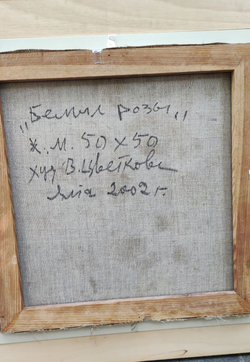 „Белил розы„
х.м. 50х50
худ В.Цветкова
Ялта 2002 г.